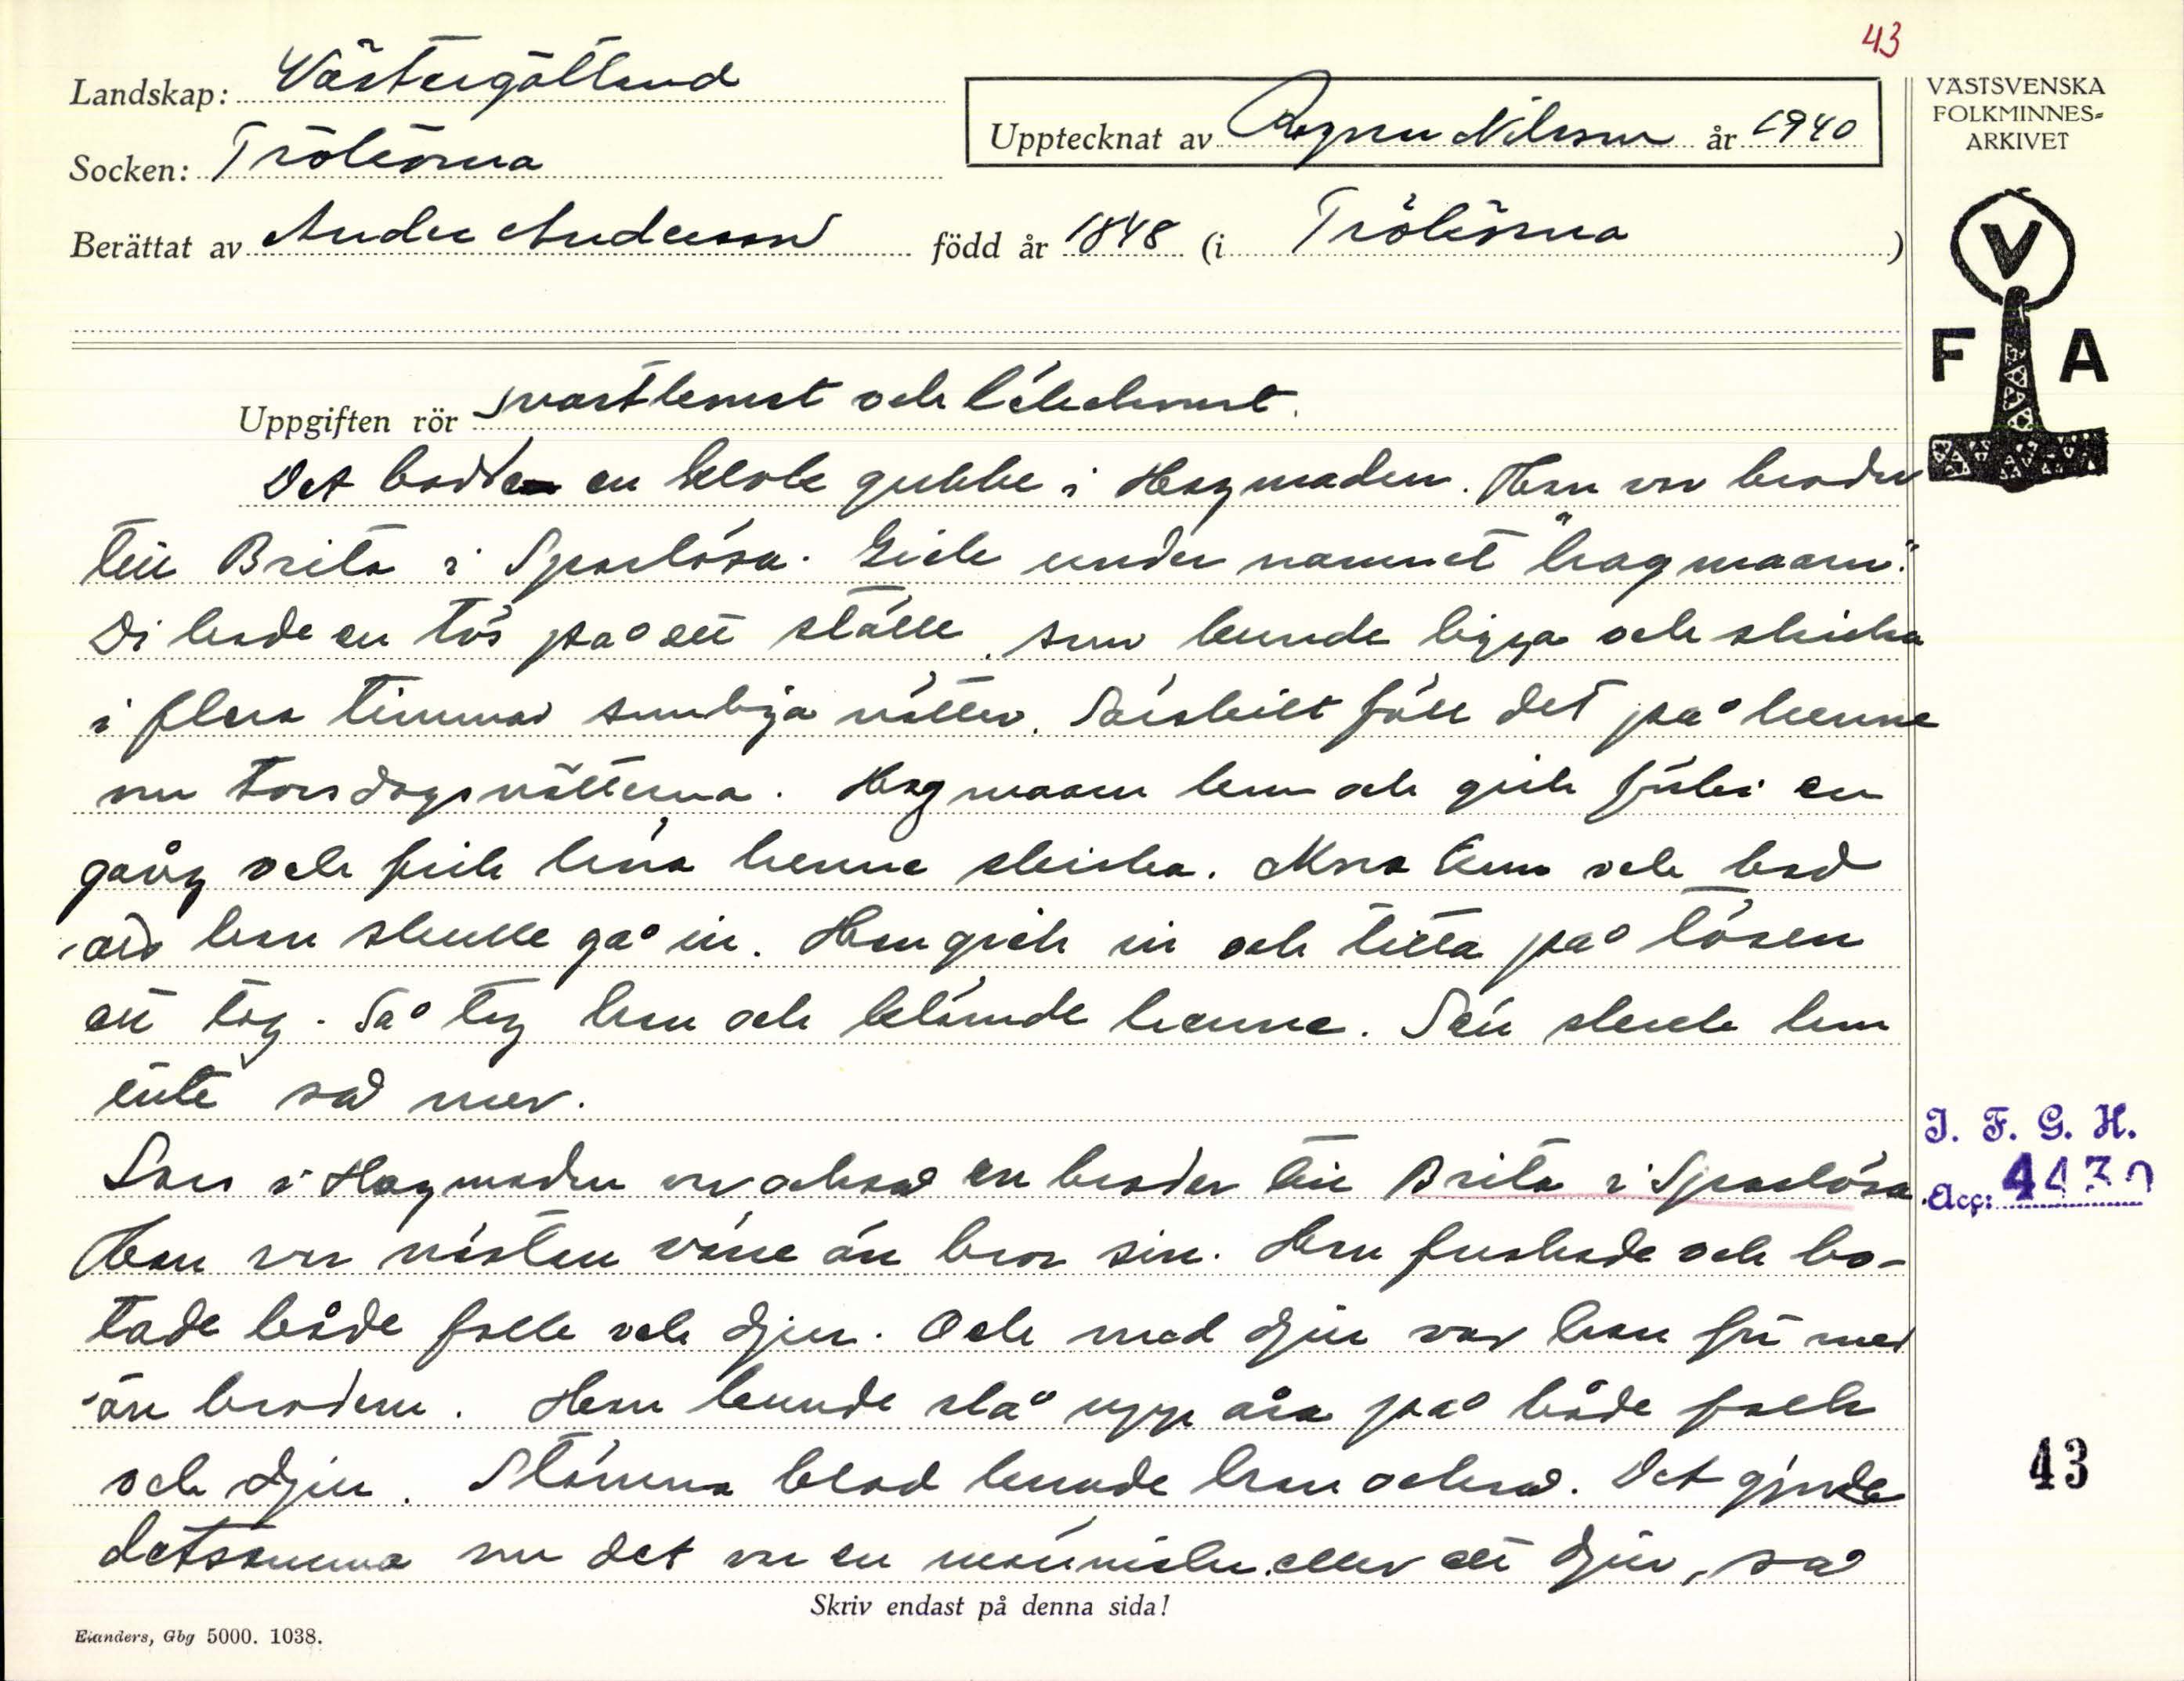 43
Landskap: Västergötland
VÄSTSVENSKA
FOLKMINNES=
ARKIVET
Upptecknat av Ragnar Nilsson år 1940
Socken: Trökörna
Berättat av Anders Andersson född år 1848 (i Trökörna)
V
F A
Uppgiften rör svartkonst och läkekonst.
Det bodde en klok gubbe i Hagmaden. Han var broder
till Brita i Sparlösa. Gick under namnet "hagmaarn."
Di hade en tös på ett ställe, som kunde ligga och skrika
i flera timmar somliga nätter. Särskilt föll det på henne
om torsdagsnätterna. Hagmaarn kom och gick förbi en
gång och fick höra henne skrika. Mora kom och bad
att han skulle gå in. Han gick in och titta på tösen
ett tag. Så tog han och belände henne. Sen skrek hon
inte så mer.
Lars i Hagmaden var också en broder till Brita i Sparlösa.
Han var nästan värre än bror sin. Han fuskade och bo-
tade både folk och djur. Och med djur var han för med
än brodern. Han kunde slå upp åra på både folk
och djur. Stämma blod kunde han också. Det gjorde
detsamma om det var en människa eller ett djur, så
Skriv endast på denna sida!
Elanders, Gbg 5000. 1038.
I. F. G. H.
Acc: 4430
43